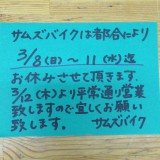 サムズバイクは都合により
3/8(日)〜11(水)迄
お休みさせて頂きます.
3/12(木)より平常通り営業
致しますので宜しくお願い
致します。 サムズバイク